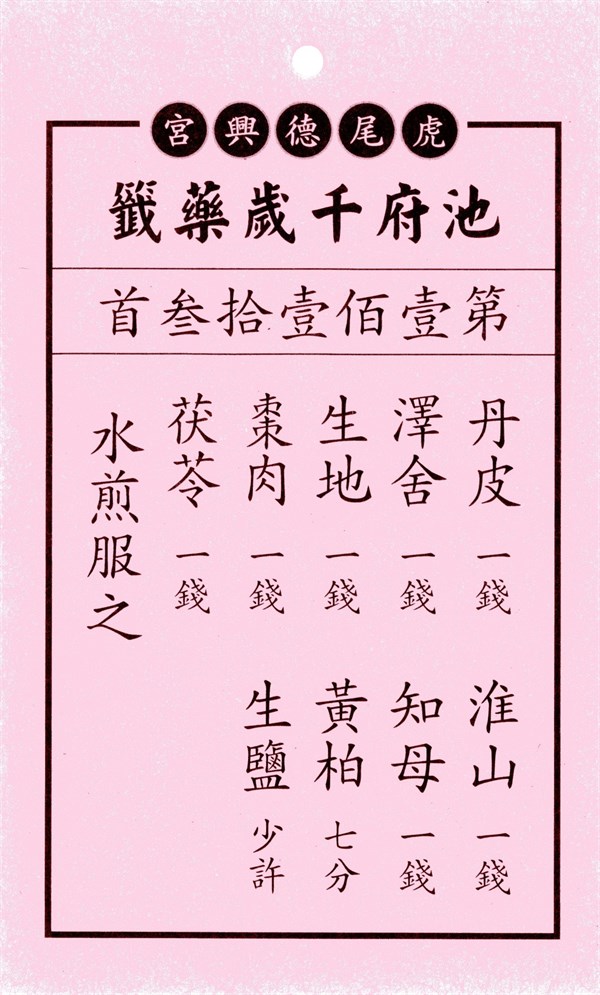 虎尾德興宮
池府千歲藥籤
第壹佰壹拾叁首
丹皮 一錢 淮山 一錢
澤舍 一錢 知母 一錢
生地 一錢 黃柏 七分
棗肉 一錢 生鹽 少許
茯苓 一錢
水煎服之